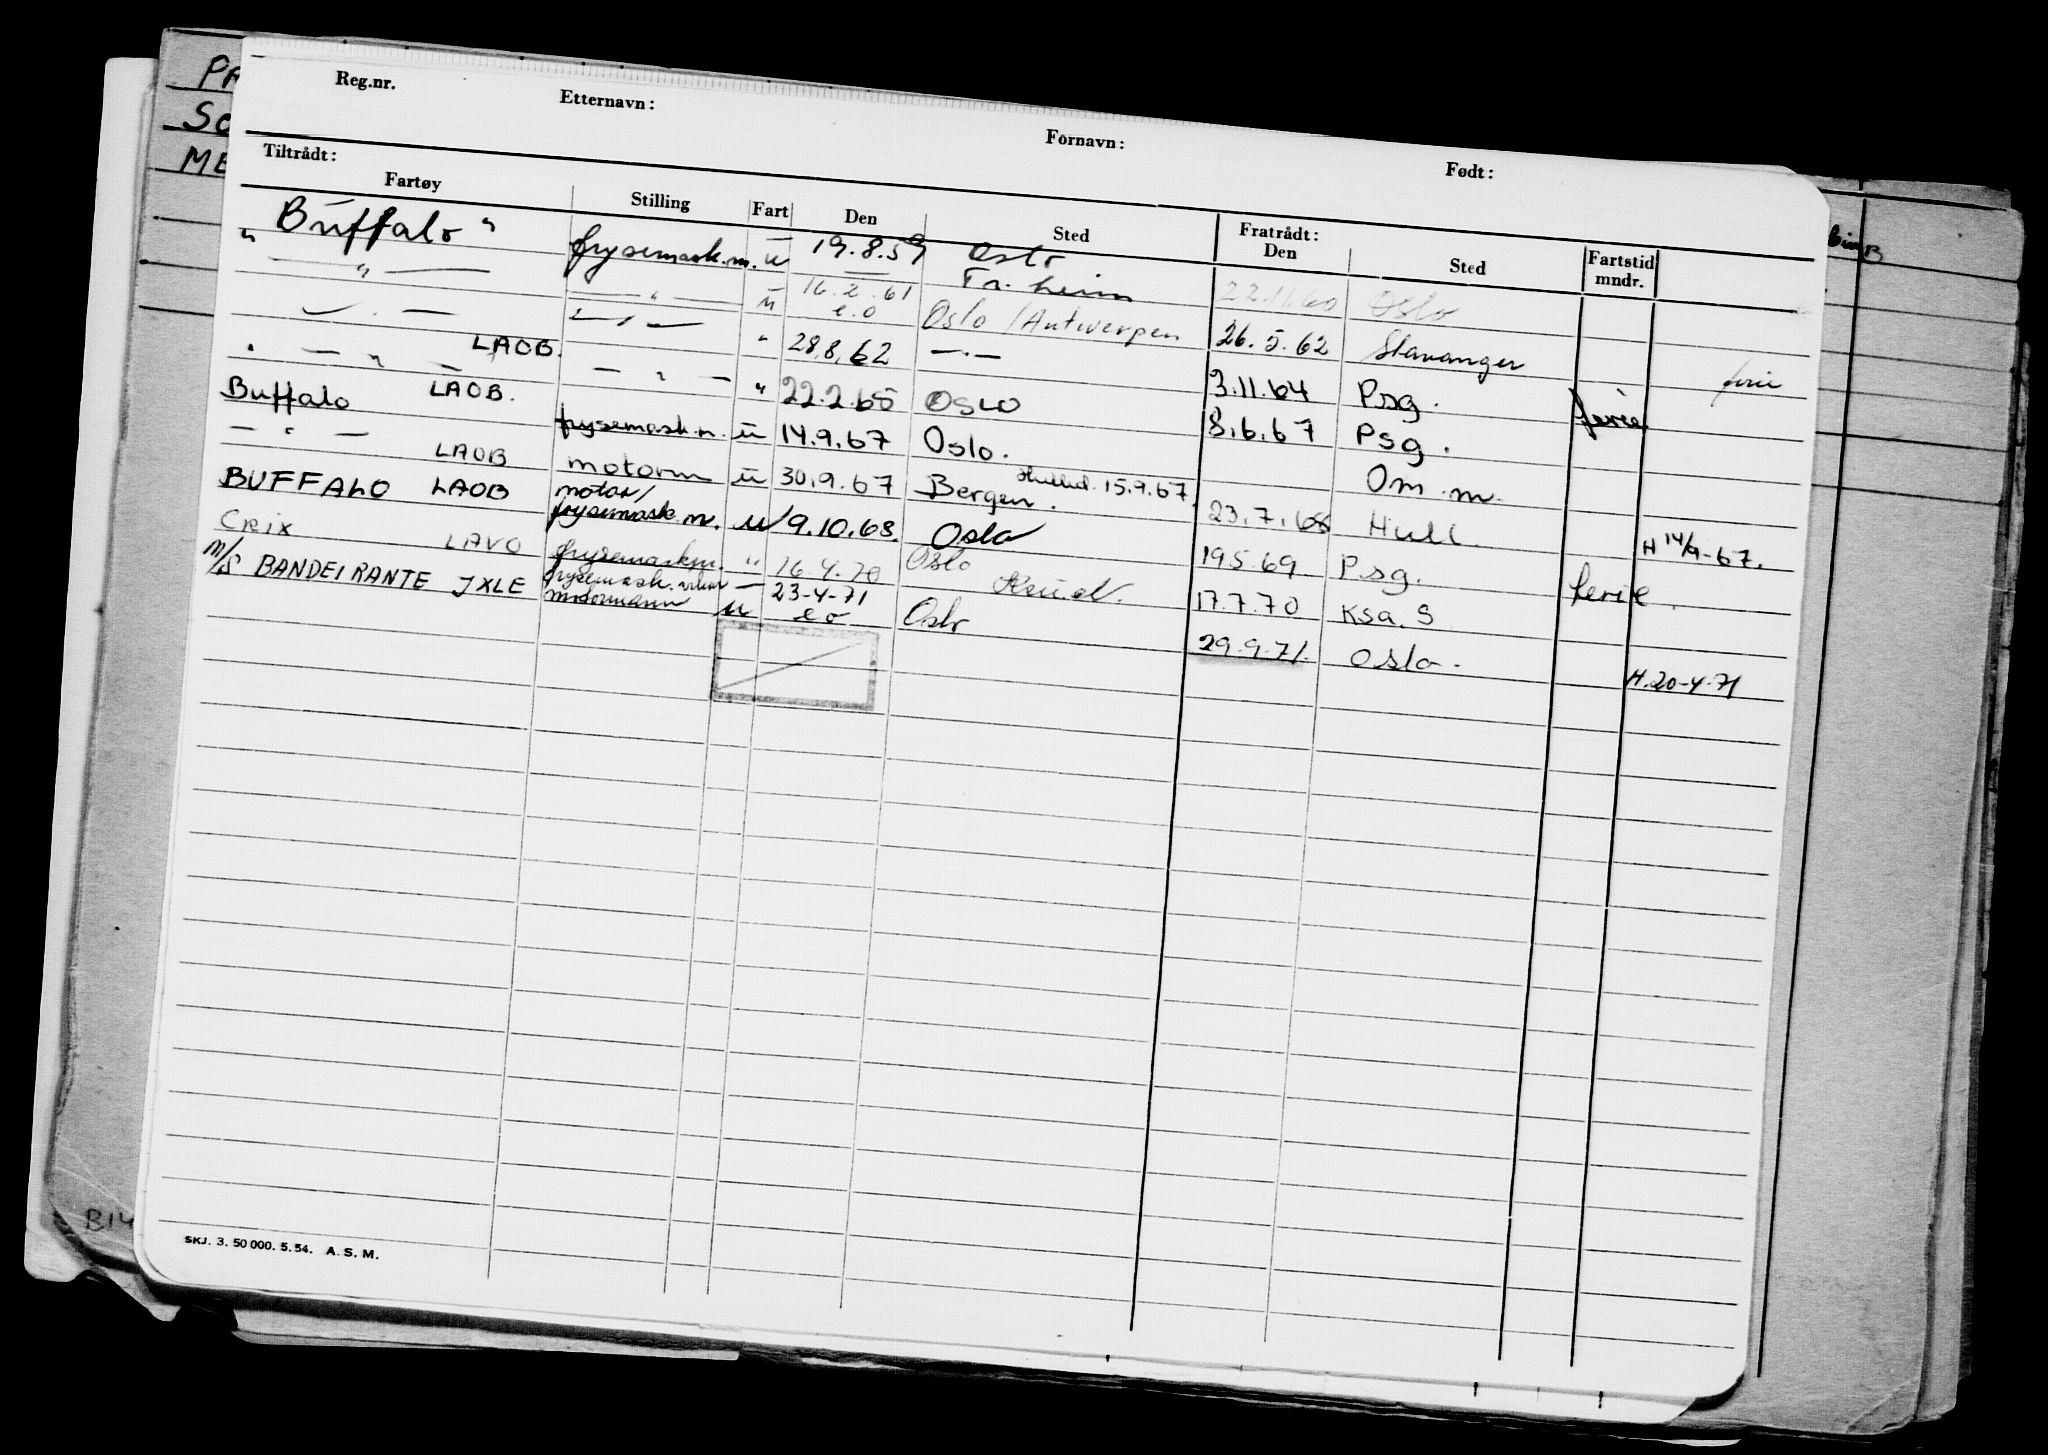 Reg.nr. Etternavn: Fornavn: Født:
Tiltrådt: Fratrådt:
Fartøy Stilling Fart Den Sted Den Sted Fartstid mndr.
"Buffalo" frysemask.m. u 19.8.59 Oslo 22.11.60 Oslo
— " — — " — u 16.2.61 e.o Tr.heim 26.5.62 Stavanger ferie
— . — — " — " 28.8.62 Oslo/Antwerpen 3.11.64 Psg. ferie
— " — LAOB. — " — " 22.2.65 Oslo 8.6.67 Psg.
Buffalo LAOB. frysemask.m. u 14.9.67 Oslo. 15.9.67. Om.m.
— " — LAOB motorm u 30.9.67 Bergen. 23.7.68 Hull H 14/9-67.
BUFFALO LAOB motor/frysemask.m. u 9.10.68. Oslo 19.5.69 Psg. ferie.
CRIX LAVO frysemaskm. " 16.4.70 Oslo 17.7.70 Ksa.S
M/S BANDEIRANTE JXLE frysemask. motormann u 23-4-71 e o Oslo 29.9.71. Oslo. H.20-4-71
SKJ. 3. 50 000. 5. 54. A. S. M.
PA
SO
ME
B14